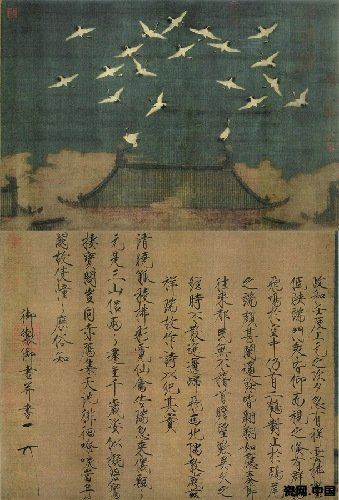 政和壬辰上元之次夕忽有祥雲拂鬱
低映端門衆皆仰而視之倏有群鶴
飛鳴於空中仍有二鶴對止於鴟尾
之端頗甚閒適餘皆翱翔如應奏節
往來都民無不稽首瞻望歎異久之
經時不散迤邐歸飛西北隅散感茲
祥瑞故作詩以紀其實
清曉觚稜拂彩霓仙禽告瑞忽來儀飄飄
元是三山侶兩兩還呈千歲姿似擬碧鸞
棲寶閣豈同赤鴈集天池徘徊嘹唳當丹
闕故使憧憧庶俗知
御製御畫并書
瓷网.中国